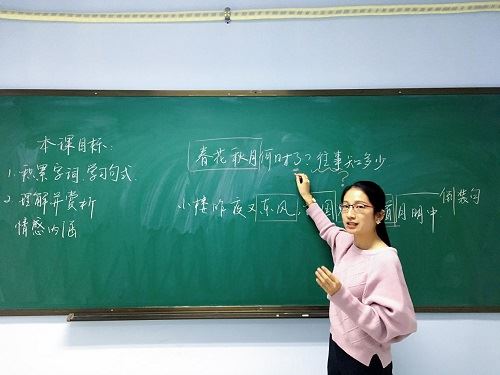 本课目标:
1.积累字词,学习句式.
2.理解并赏析
情感内涵
春花秋月何时了?往事知多少
小楼昨夜又东风, 国 首月明中
倒装句